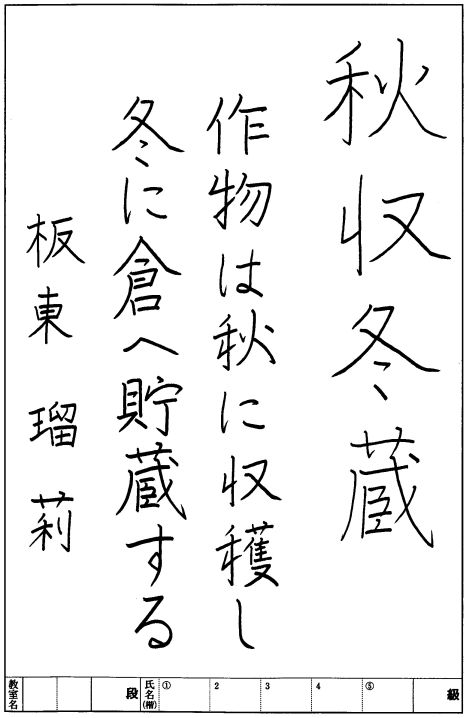 秋収冬蔵
作物は秋に収穫し
冬に倉へ貯蔵する
板東 瑠莉
教室名 段 氏名(楷) ① 2 3 4 ⑤ 級